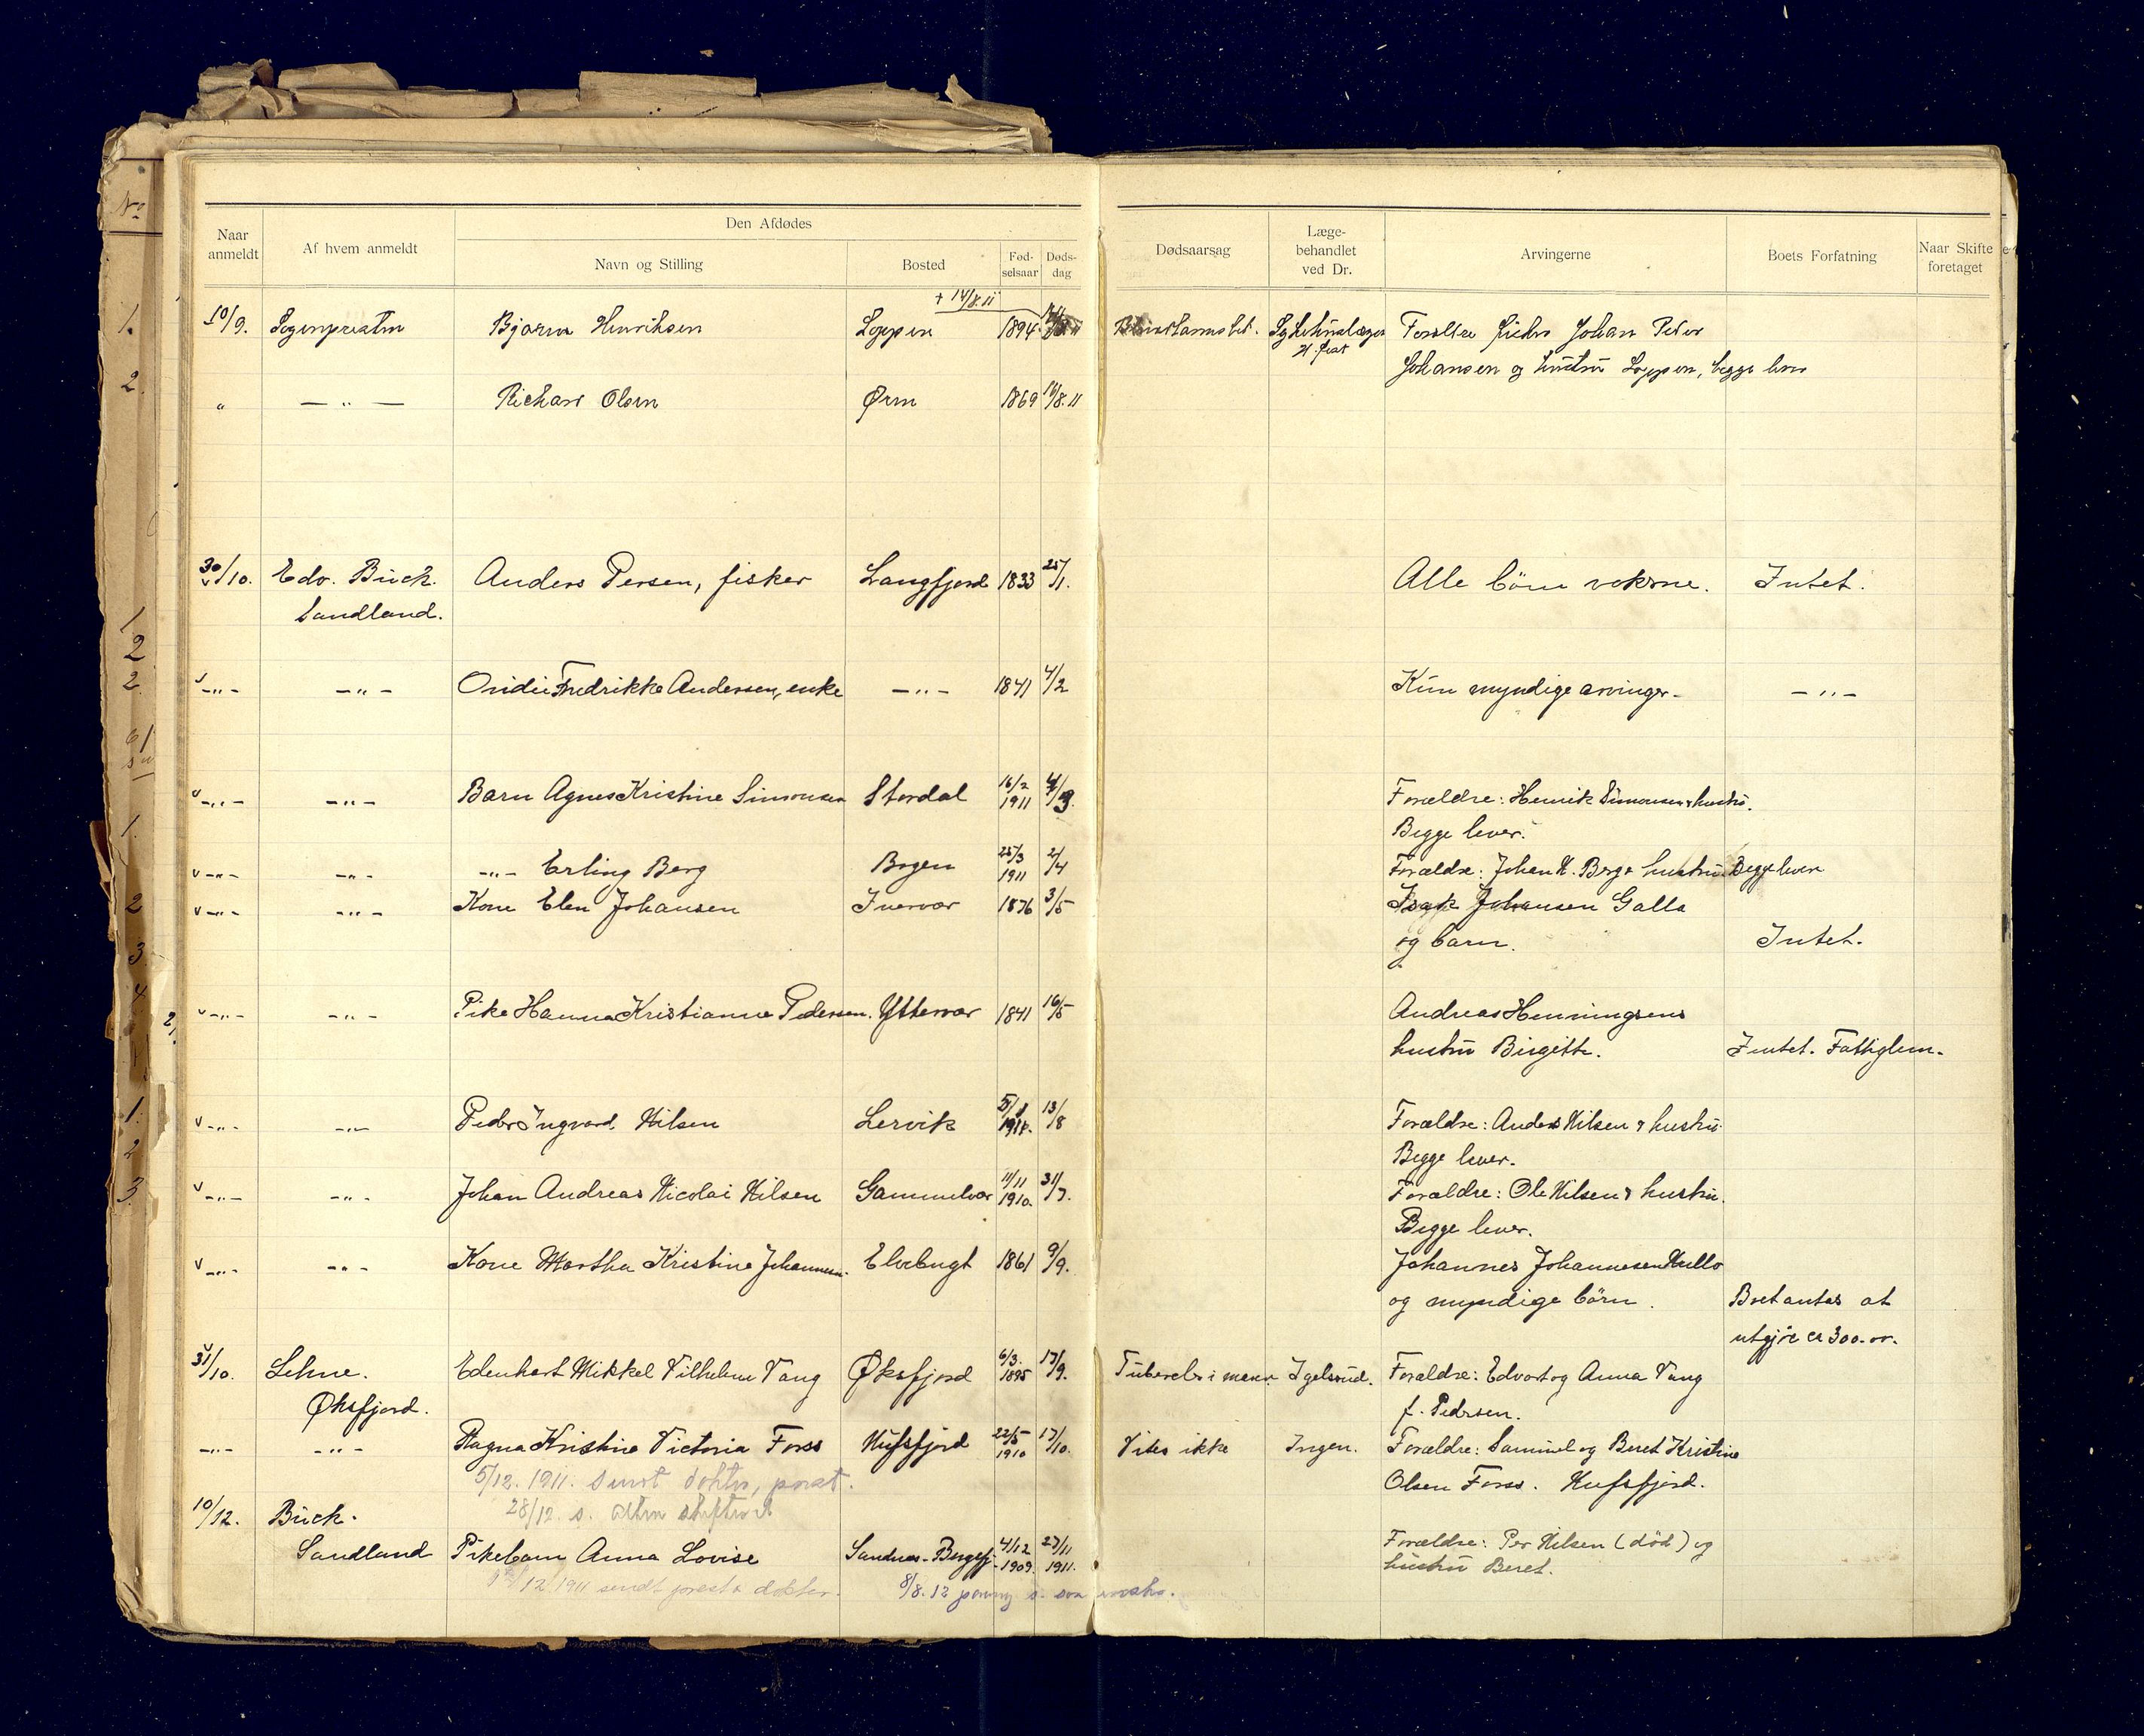 Naar anmeldt
Af hvem anmeldt
Den Afdødes
Navn og Stilling
Bosted
Fød-
selsaar
Døds-
dag
Dødsaarsag
Læge-
behandlet
ved Dr.
Arvingerne
Boets Forfatning
Naar Skifte
foretaget
+ 14/8.11
10/9. Sogenpresten Bjarne Henriksen Loppen 1894 Forældre fisker Johan Peder
Johansen og hustru Loppen, begge lever
" — " — Richard Olsen Øren 1869 16/8.11
30/10. Edv. Buck. Anders Persen, fisker Langfjord 1833 25/1. Alle börn voksne. Intet.
Sandland.
v -"- -"- Ovidie Fredrikke Andersen, enke -"- 1841 4/2 Kun myndige arvinger. -"-
v -"- -"- Barn Agnes Kristine Simonsen Stordal 16/2 1911 Forældre: Henrik Simonsen & hustru.
Begge lever.
v -"- -"- -"- Erling Berg Bogen 25/3 1911 2/4 Forældre: Johan N. Berg & hustru Begge lever
v -"- -"- Kone Elen Johansen Ivervær 1876 3/5 Isak Johansen Galla
og barn. Intet.
v -"- -"- Pike Hanna Kristianne Pedersen. Yttervær 1841 16/5 Andreas Henningsens
hustru Birgitte. Intet. Fattiglem.
v -"- -"- Peder Ingvard Nilsen Lervik 13/8 Forældre: Anders Nilsen & hustru
Begge lever.
v -"- -"- Johan Andreas Nicolai Nilsen Gammelvær 11/11 1910. 31/7. Forældre: Ole Nilsen & hustru.
Begge lever.
v -"- -"- Kone Martha Kristine Johannesen. Elvebugt 1861 9/9. Johannes Johannesen
og myndige börn. Boet antas at
utgjøre ca 300.-
31/10. Lehne. Edenhart Mikkel Vilhelm Vang Øksfjord 6/3. 1895 17/9. Igelsrud. Forældre: Edvart og Anna Vang
Øksfjord. f. Pedersen.
-"- -"- Ragna Kristine Victoria Forss Nufsfjord 22/5 1910 17/10. Vites ikke Ingen. Forældre: Samuel og Beret Kristine
5/12. 1911. sendt doktor, prest. Olsen Forss. Nufsfjord.
28/12. s.
10/12. Buck.
Sandland Pikebarn Anna Lovise Sandnes-Bergsfj. 4/12 1909. 27/11 1911. Forældre: Per Nilsen (död) og
hustru Beret.
12 1911 sendt prest & doktor. 8/8.12